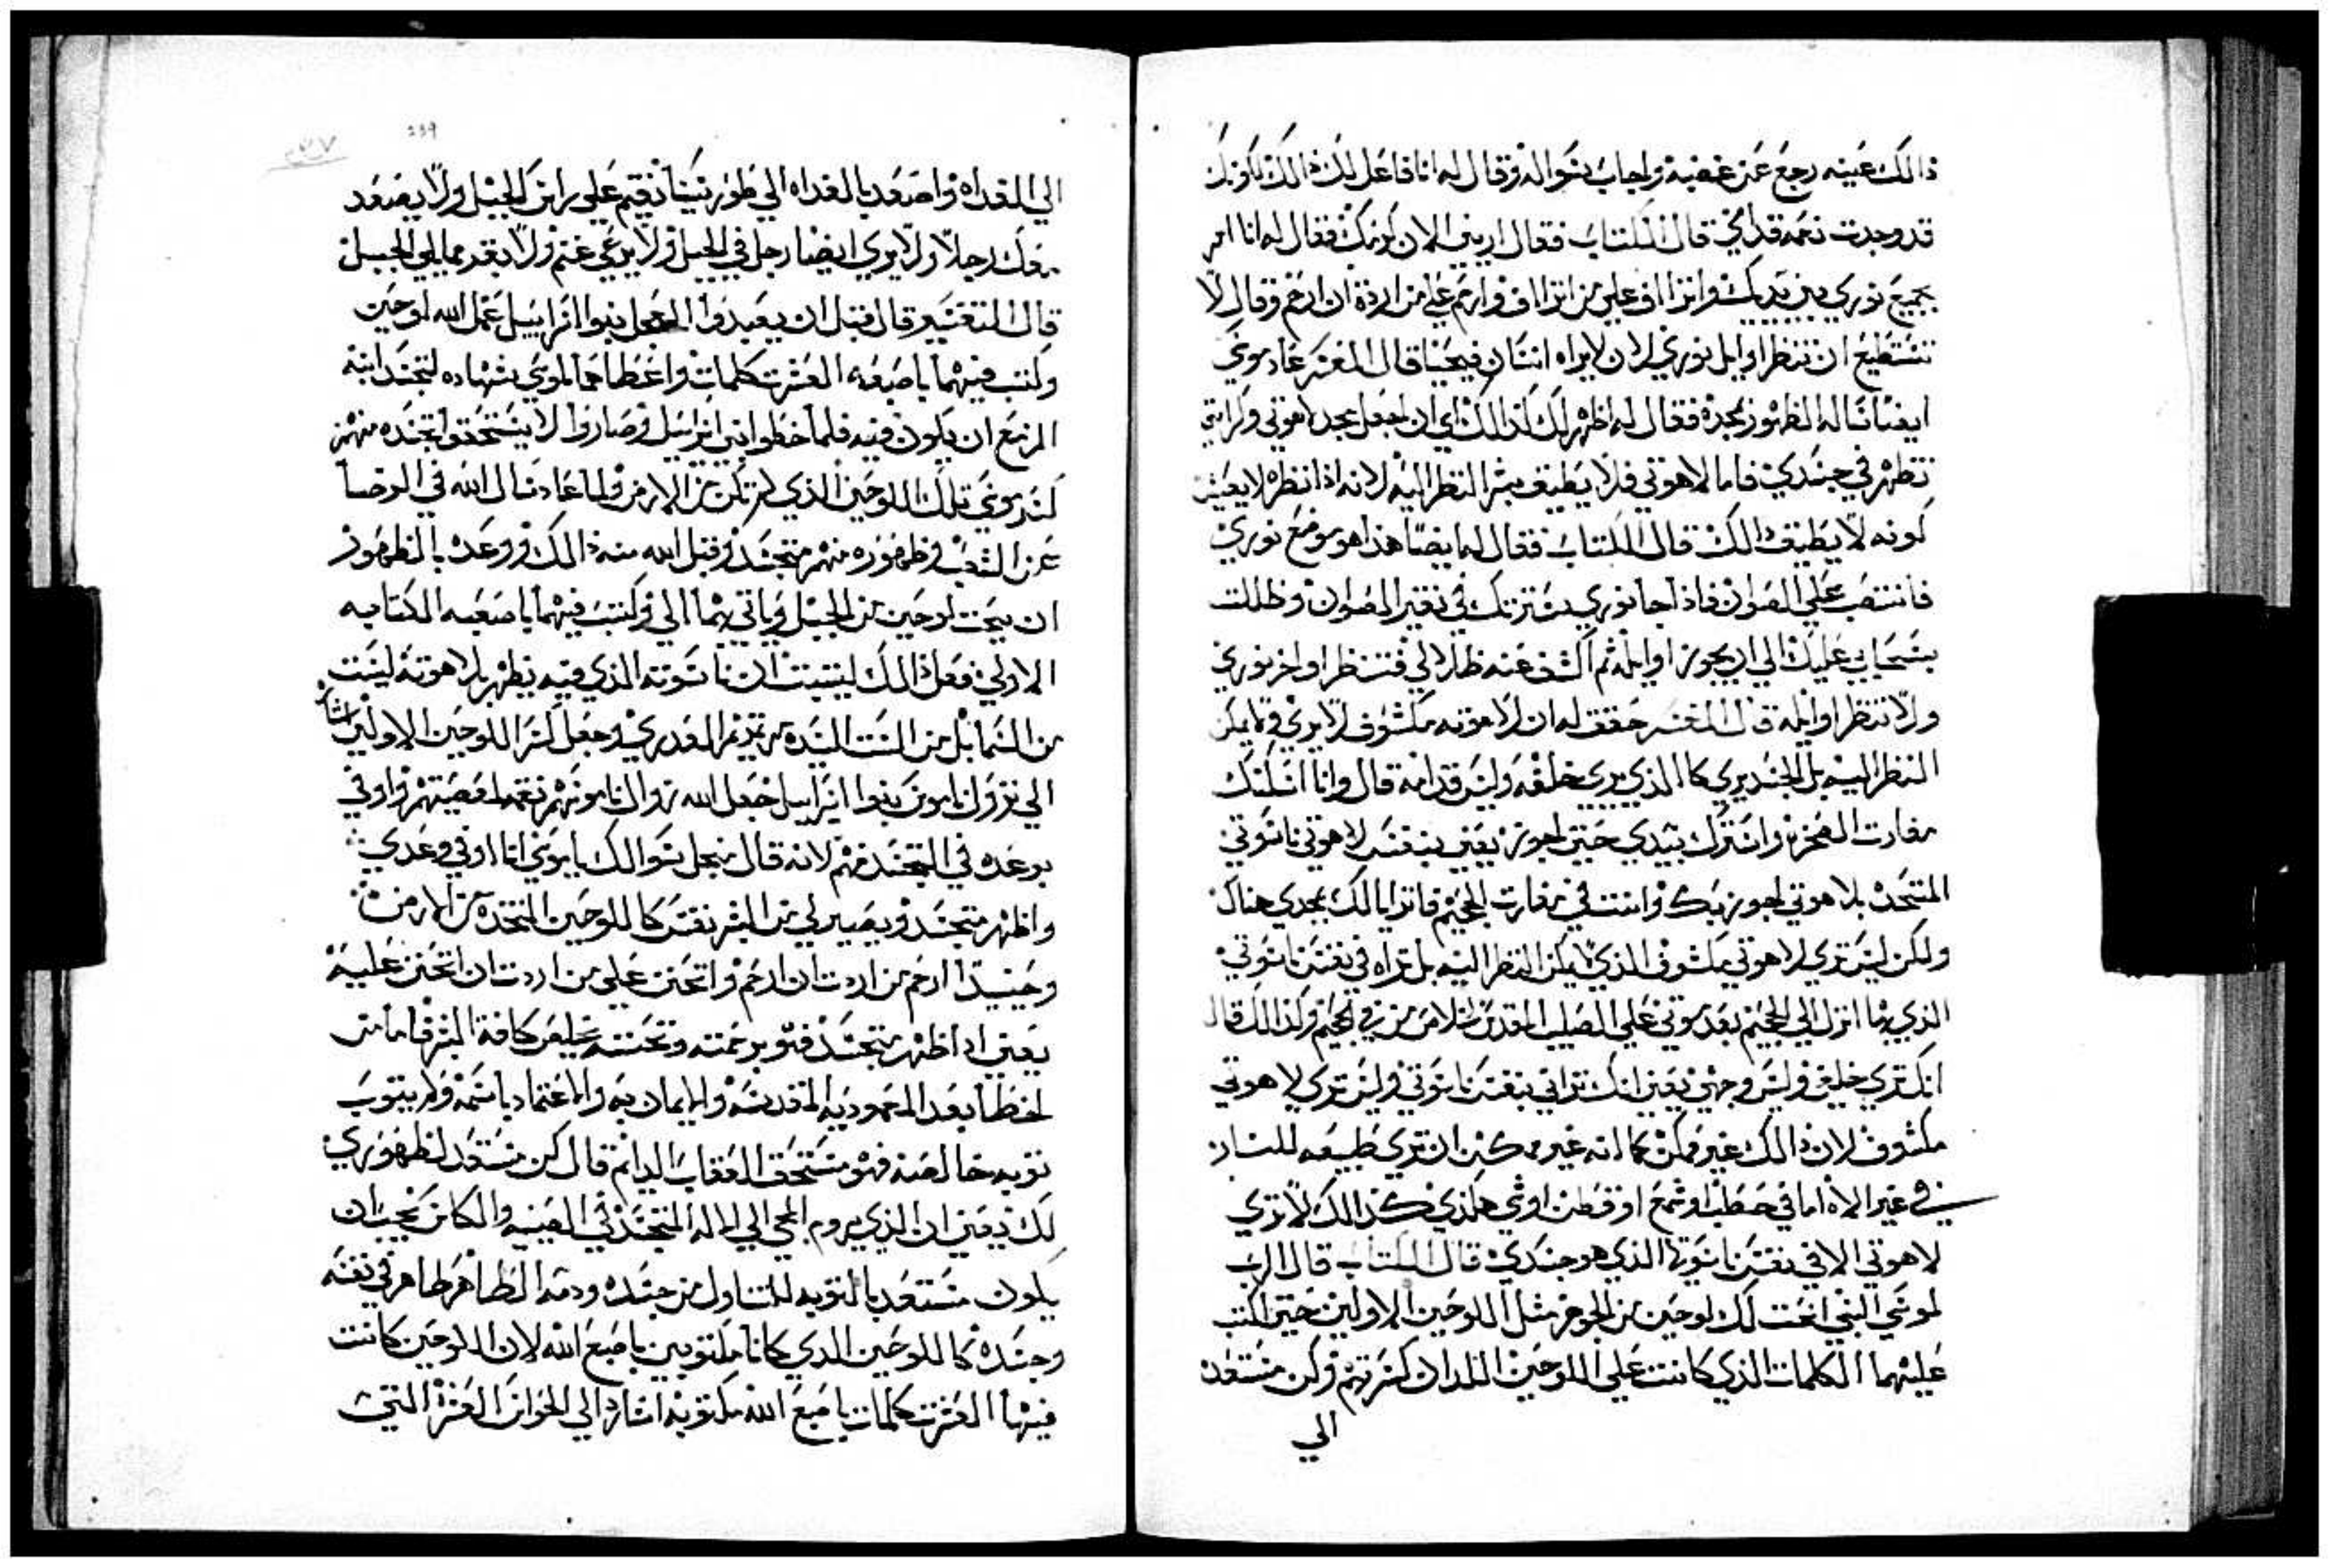 ذالك عينه رجع عن غضبه واجاب سواله وقال له انا فاعل لك ذالك لكونك
قد وجدت نعمه قدامي قال الكتاب فقال اريني الان كونك فقال له انا امر
بجميع نوري بين يديك واتراف علي من اتراف وارحم علي من اردة ان ارحم وقال لا
تستطيع ان تنظر اوايل نوري لان لا يراه انسان فيحيا قال المفسر عاد موسي
ايضا ساله الظهور بمجده فقال له اظهر لك كذالك اي ان اجعل مجد لاهوتي وكرامتي
تظهر في جسدي فاما لاهوتي فلا يطيق بشر النظر اليه لانه اذا نظره لا يعيش
كونه لا يطيق ذالك قال الكتاب فقال له ايضا هذا هو موضع نوري
فانتصب علي الصوان فاذا جا نوري سترتك في نقير الصوان وظللت
بسحابي عليك الي ان يجوز اوايله ثم اكشف عنه ظلالي فتنظر اواخر نوري
ولا تنظر اوايله قال المفسر حقق له ان لاهوته مكشوف لا يري ولا يمكن
النظر اليه بل الجسد يري كالذي يري خلفه وليس قدامه قال وانا اسكنك
مغارت الصخره واسترك بيدي حتي اجوز يعني بنفس لاهوتي ناسوتي
المتحد بلاهوتي اجوز بك وانت في مغارت الجحيم فاترايا لك بمجدي هناك
ولكن ليس تري لاهوتي مكشوف الذي لا يمكن النظر اليه بل تراه في نفس ناسوتي
الذي بها انزل الي الجحيم بعد موتي علي الصليب المقدس لخلاص من في الجحيم وكذالك قال
انك تري خلفي وليس وجهي يعني انك تراني بنفس ناسوتي وليس تري لاهوتي
مكشوف لان ذالك غير ممكن كما انه غير ممكن ان تري طبيعه للنار
في غير الاه اما في حطب او شمع او قطن او شي هكذي كذالك لا تري
لاهوتي الا في نفس ناسوتها الذي هو جسدي قال الكتاب قال الرب
لموسي النبي انحت لك لوحين من الجوهر مثل اللوحين الاولين حتي اكتب
عليهما الكلمات الذي كانت علي اللوحين اللدان كسرتهم وكن مستعد
الي
239
الي الغداه واصعد بالغداه الي طور سينا تقيم علي راس الجبل ولا يصعد
معك رجلا ولا يري ايضا رجل في الجبل ولا يرعي غنم ولا بقر مما يلي الجبل
قال التفسير قال قبل ان يعبدوا العجل بنوا اسراييل عمل الله لوحين
وكتب فيهما باصبعه العشرت كلمات واعطاهما لموسي شهاده لتجسد ابنه
المزمع ان يكون فيه فلما خطوا بني اسراييل وصاروا لا يستحقوا تجسده منهم
كسر موسي تلك اللوحين الذي لم تكن من الارض ولما عاد سال الله في الرضا
عن الشعب وظهوره منهم متجسد وقبل الله منه ذالك ووعده بالظهور
ان ينحت لوحين من الجبل وياتي بهما الي وكتب فيهما باصبعه الكتابه
الاولي فعل ذالك ليثبت ان ناسوته الذي فيه يظهر بلاهوته ليست
من السما بل من الست السيده مرتمريم العدري وجعل كسر اللوحين الاولين اشاره
الي نزول ناموس بنوا اسراييل جعل الله زوال ناموسهم نقمه لمعصيتهم واوفي
بوعده في التجسد منهم لانه قال من اجل سوالك يا موسي انا اوفي وعدي
واظهر متجسد ويصير لي من البشر نفس كاللوحين المتخده من الارض
وحينيدا ارحم من اردت ان ارحم واتحنن علي من اردت ان اتحنن عليه
يعني اذا ظهر متجسد فهو برحمته وتحننه يخلص كافة البشر فاما من
اخطا بعد المعموديه المقدسه والايمان به والاعتماد باسمه ولم يتوب
توبه خالصه فهو مستحق العقاب الدايم قال كن مستعد لظهوري
لك يعني ان الذي يروم المجي الي الاله المتجسد في الصينيه والكاس يجب ان
يكون مستعد بالتوبه للتناول من جسده ودمه الطاهر طاهر في نفسه
وجسده كاللوحين الدي كانا مكتوبين باصبع الله لان اللوحين كانت
فيها العشرت كلمات باصبع الله مكتوبه اشاره الي الحواس العشرة التي